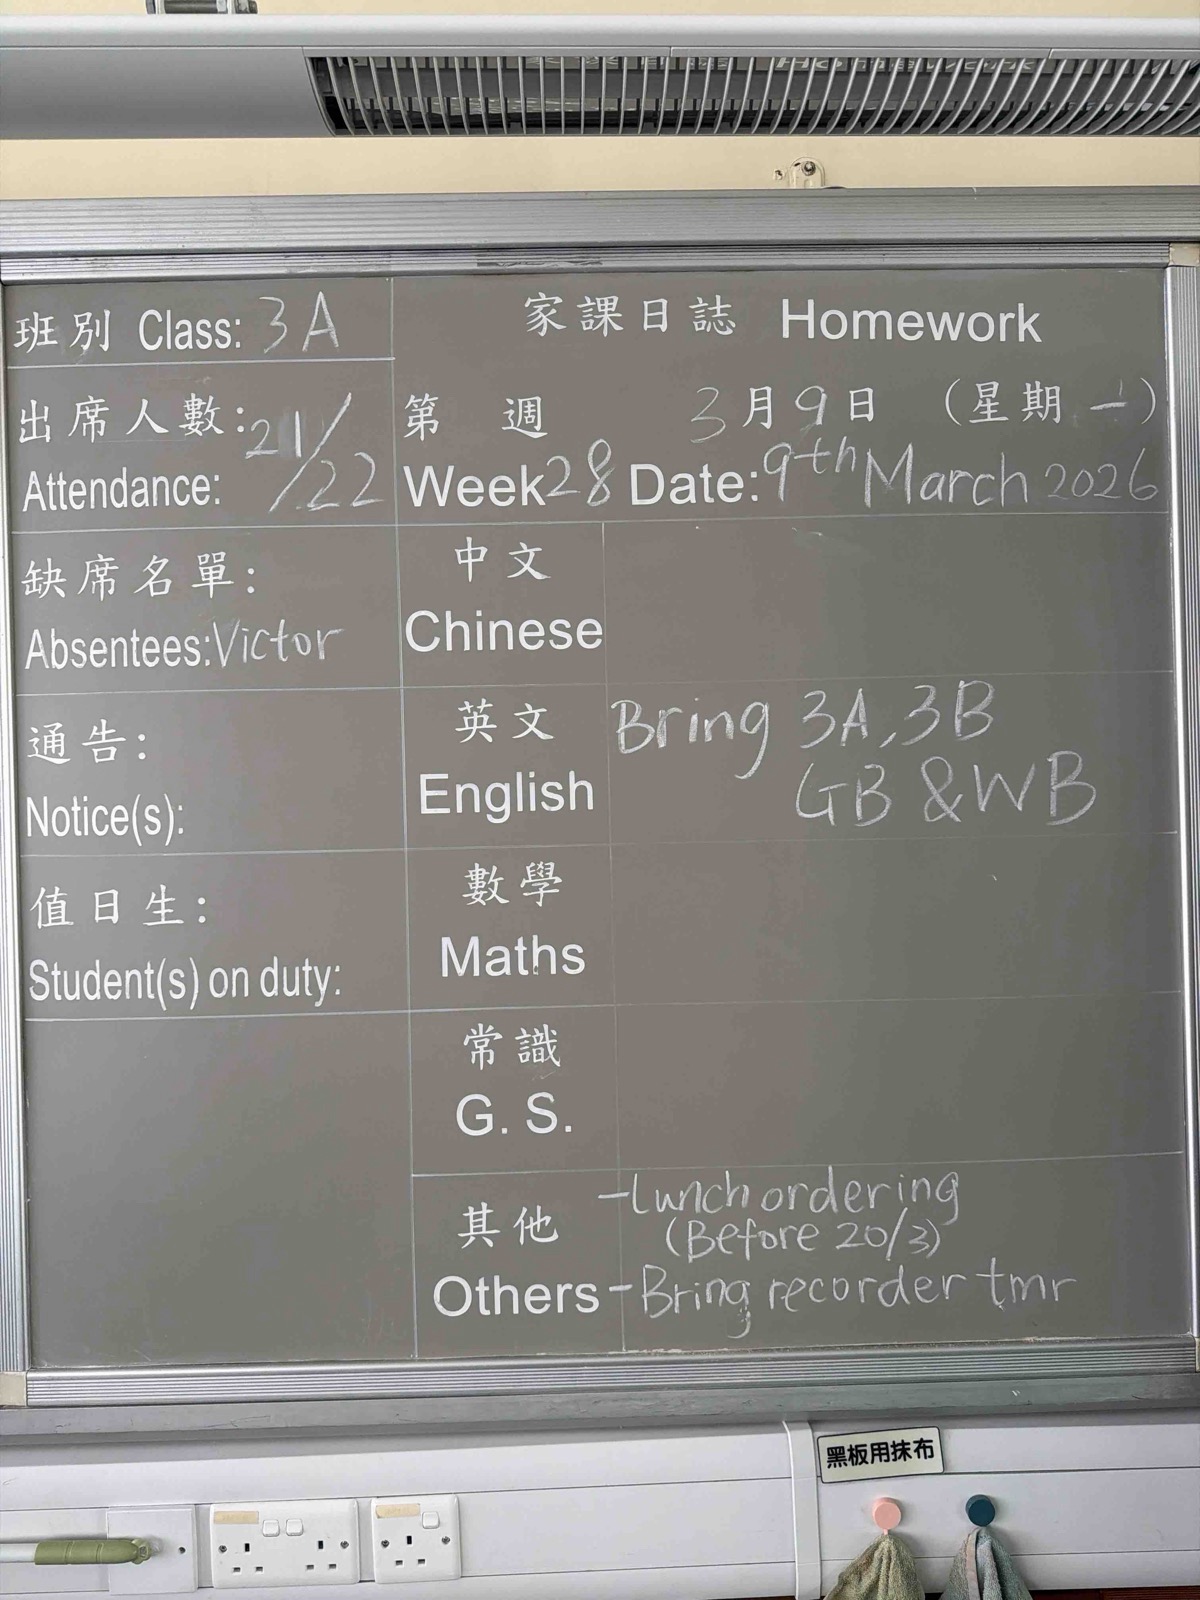 班別 Class: 3A
家課日誌 Homework
出席人數:
Attendance: 21/22
第 週 3月9日 (星期一)
Week 28 Date: 9th March 2026
缺席名單:
Absentees: Victor
中文
Chinese
通告:
Notice(s):
英文
English
Bring 3A, 3B
GB & WB
值日生:
Student(s) on duty:
數學
Maths
常識
G. S.
其他
Others
-Lunch ordering
(Before 20/3)
-Bring recorder tmr
黑板用抹布